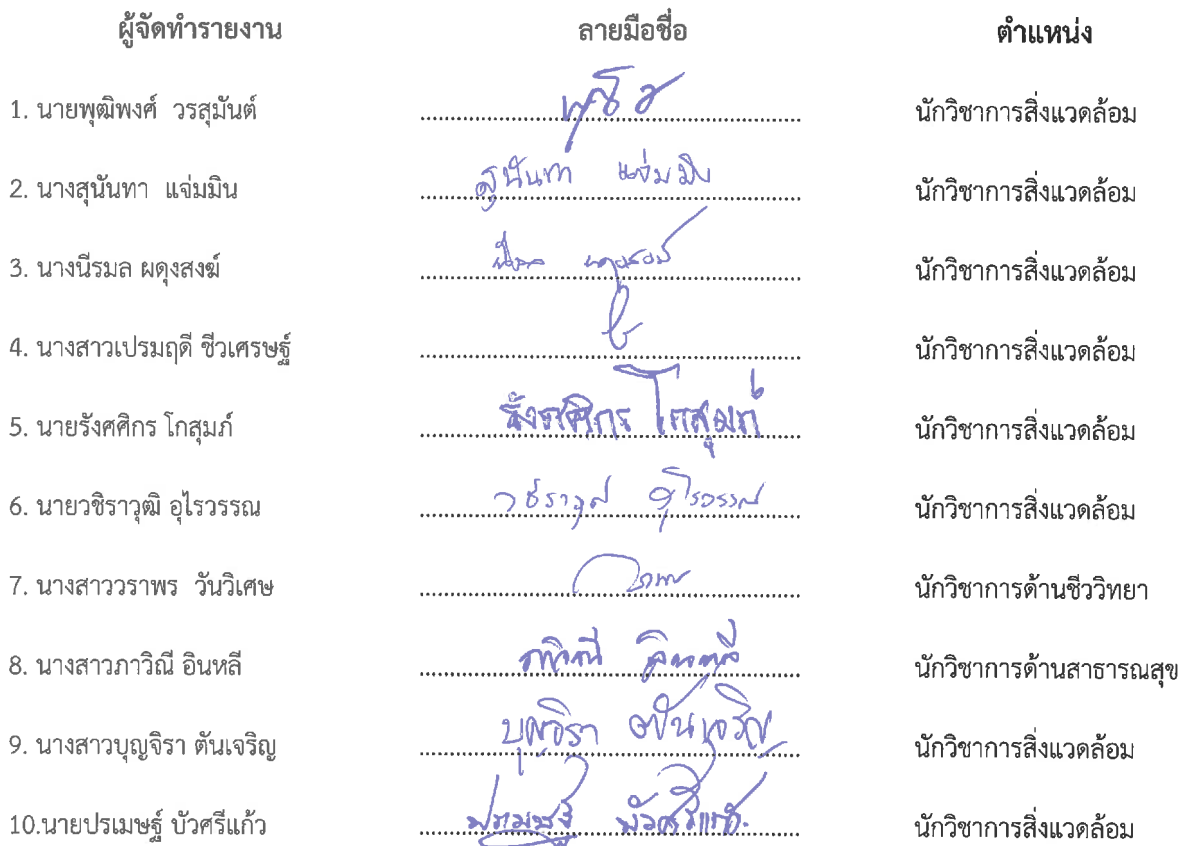 ผู้จัดทำรายงาน ลายมือชื่อ ตำแหน่ง
1. นายพุฒิพงศ์ วรสุมันต์ นักวิชาการสิ่งแวดล้อม
2. นางสุนันทา แจ่มมิน สุนันทา แจ่มมิน นักวิชาการสิ่งแวดล้อม
3. นางนีรมล ผดุงสงฆ์ นักวิชาการสิ่งแวดล้อม
4. นางสาวเปรมฤดี ชีวเศรษฐ์ นักวิชาการสิ่งแวดล้อม
5. นายรังศศิกร โกสุมภ์ รังศศิกร โกสุมภ์ นักวิชาการสิ่งแวดล้อม
6. นายวชิราวุฒิ อุไรวรรณ วชิราวุฒิ อุไรวรรณ นักวิชาการสิ่งแวดล้อม
7. นางสาววราพร วันวิเศษ นักวิชาการด้านชีววิทยา
8. นางสาวภาวิณี อินหลี ภาวิณี อินหลี นักวิชาการด้านสาธารณสุข
9. นางสาวบุญจิรา ตันเจริญ บุญจิรา ตันเจริญ นักวิชาการสิ่งแวดล้อม
10.นายปรเมษฐ์ บัวศรีแก้ว ปรเมษฐ์ บัวศรีแก้ว นักวิชาการสิ่งแวดล้อม